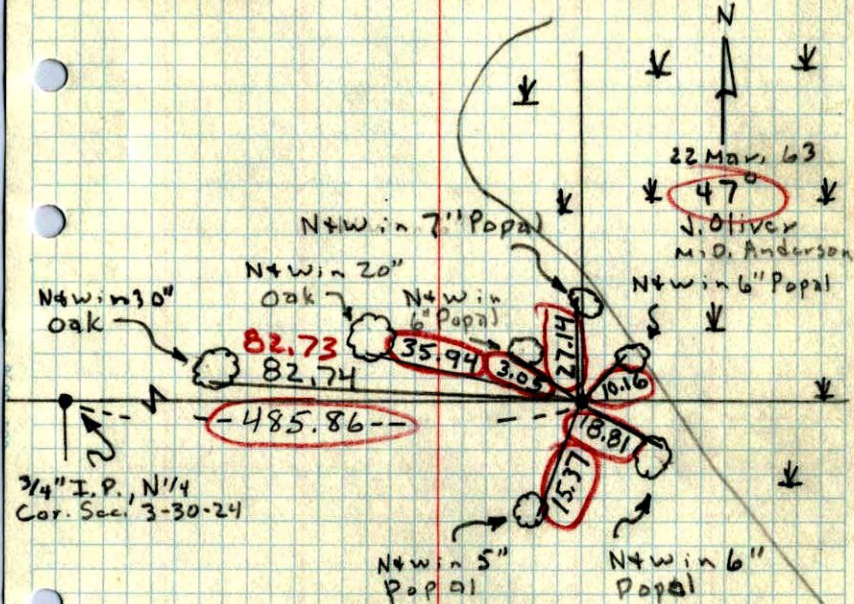 N
22 Mar, 63
47°
J. Oliver
M.D. Anderson
N&W in 7" Popal
N&W in 6" Popal
N&W in 20"
Oak
N&W in
6" Popal
N&W in 30"
Oak
82.73
82.74
35.94
3.05
27.14
10.16
--485.86--
18.81
15.37
3/4" I.P., N1/4
Cor. Sec. 3-30-24
N&W in 5"
Popal
N&W in 6"
Popal